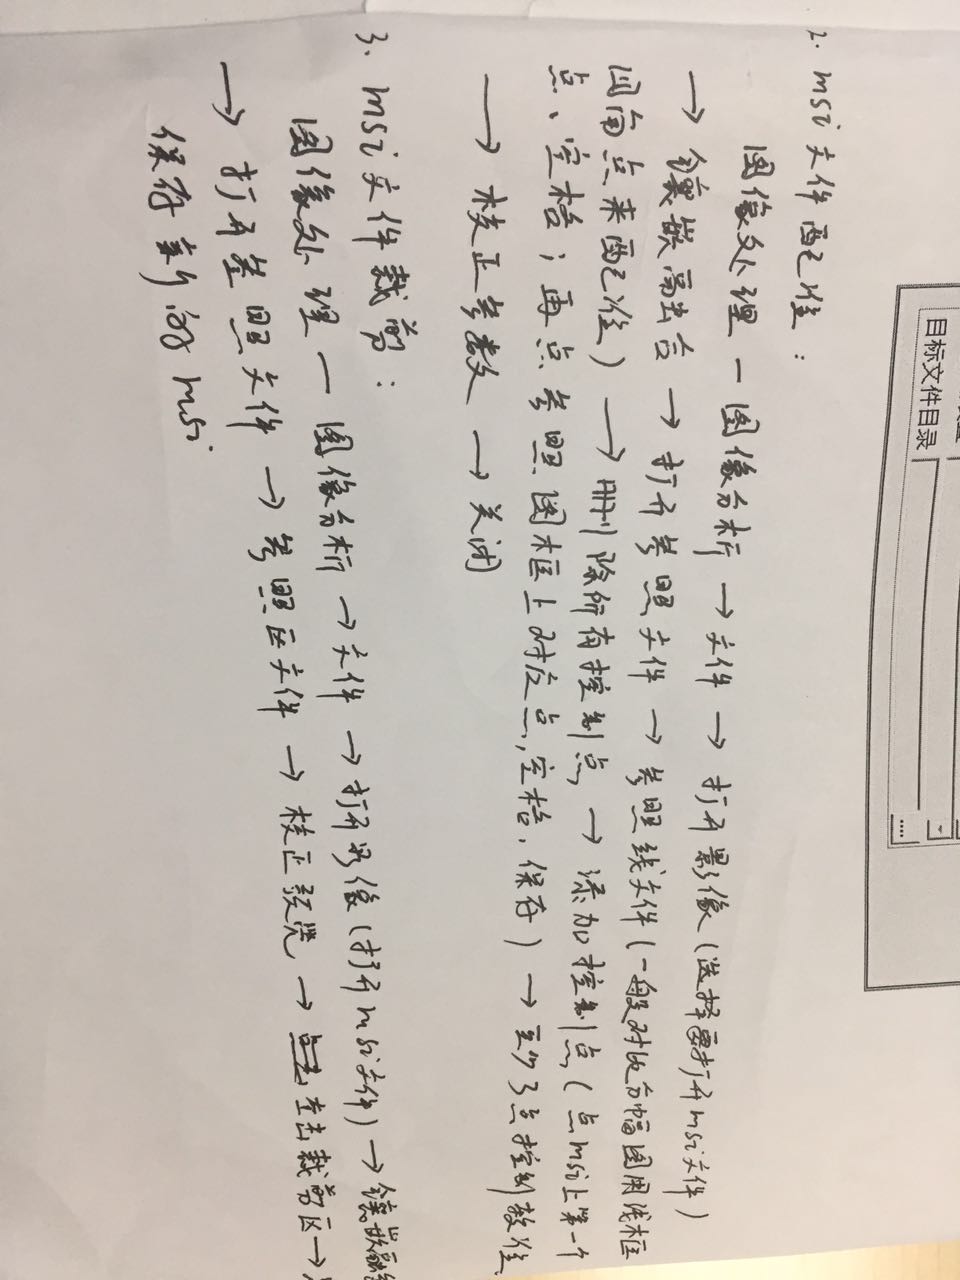 目标文件目录
2. msi文件配准：
图像处理—图像分析→文件→打开影像（选择要打开msi文件）
→镶嵌融合→打开参照文件→参照线文件（一般对分幅图用线框
四角点来配准）→删除所有控制点→添加控制点（点msi上第一个
点、空格；再点参照图框上对应点，空格，保存）→至少3点控制校准
→校正参数→关闭
3. msi文件裁剪：
图像处理—图像分析→文件→打开影像（打开msi文件）→镶嵌融
→打开参照文件→参照区文件→校正预览→左击裁剪区→
保存新的msi